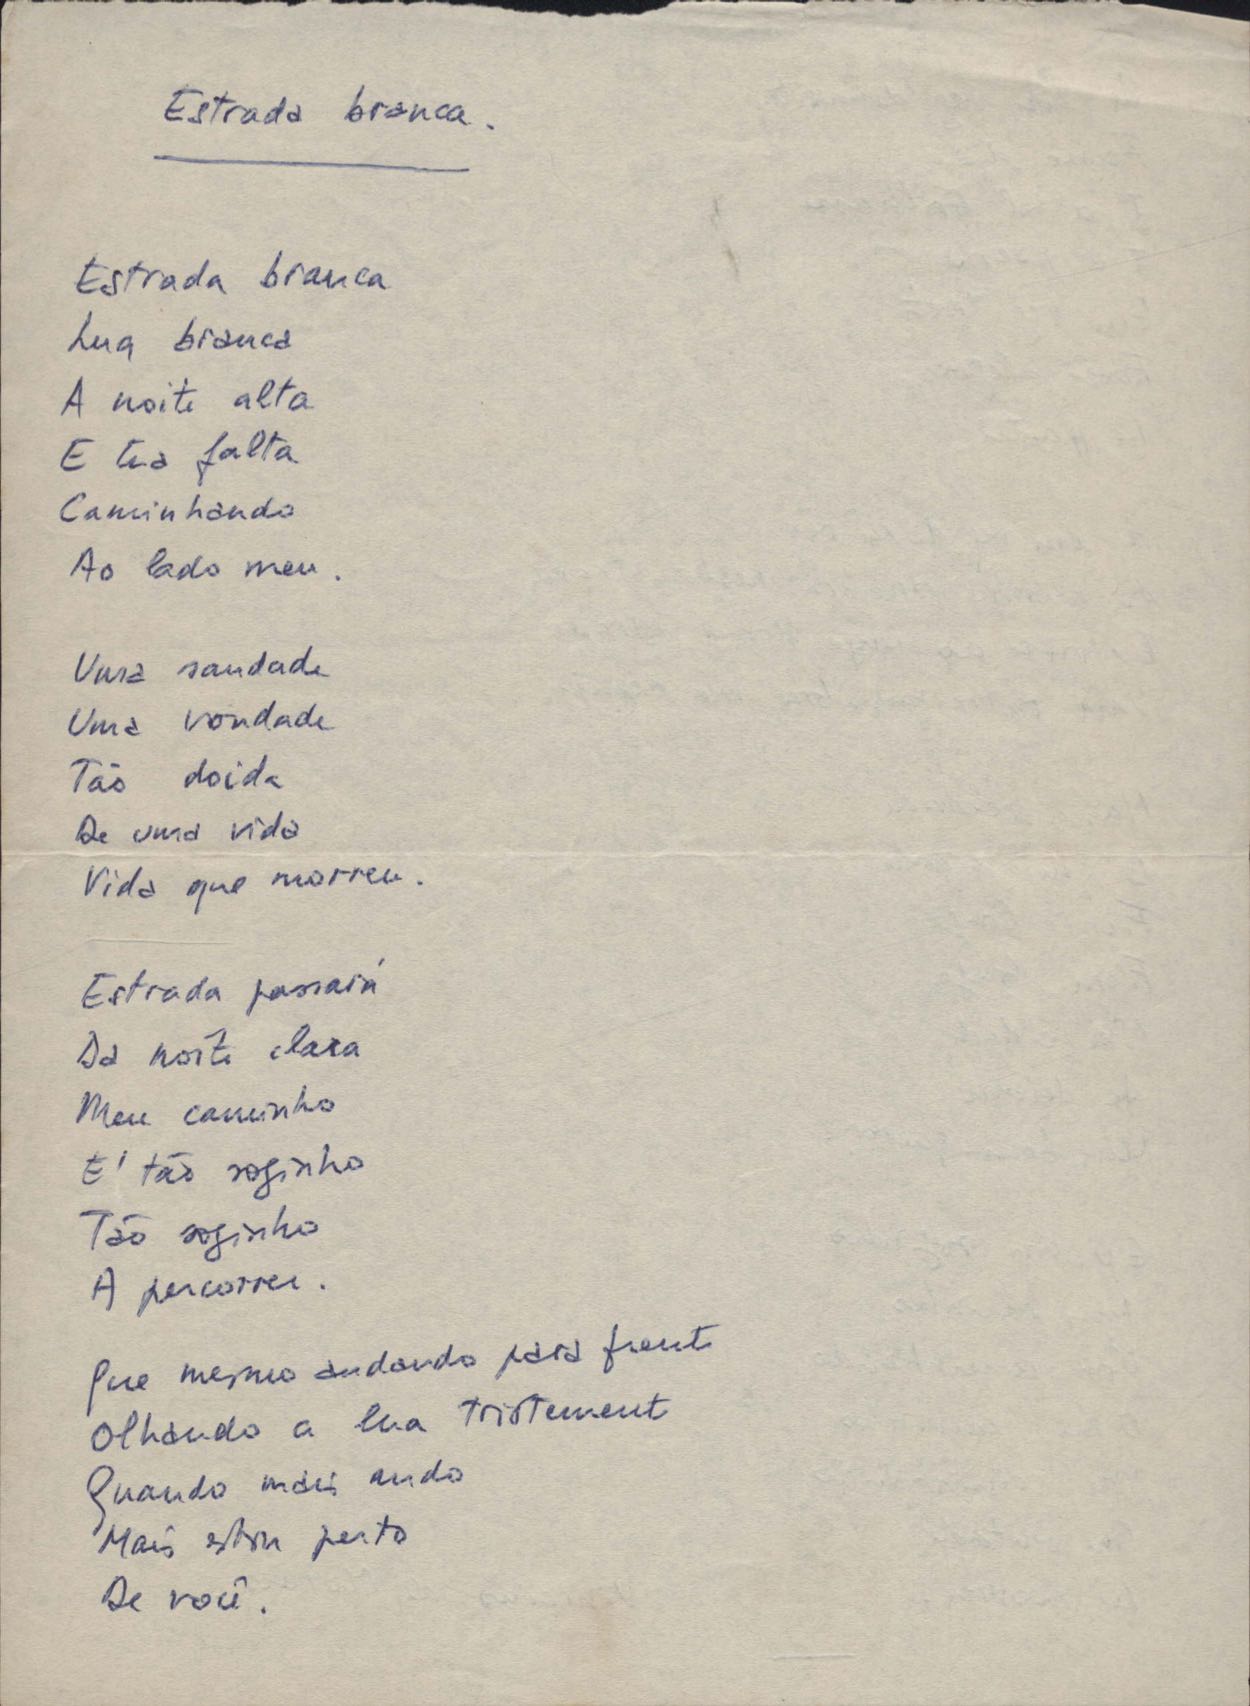 Estrada branca.
Estrada branca
Lua branca
A noite alta
E tua falta
Caminhando
Ao lado meu.
Uma saudade
Uma vondade
Tão doida
De uma vida
Vida que morreu.
Estrada passará
Da noite clara
Meu caminho
E' tão soginho
Tão soginho
A percorrer.
Que mesmo andando para frente
Olhando a lua tristemente
Quando mais ando
Mais estou perto
De você.